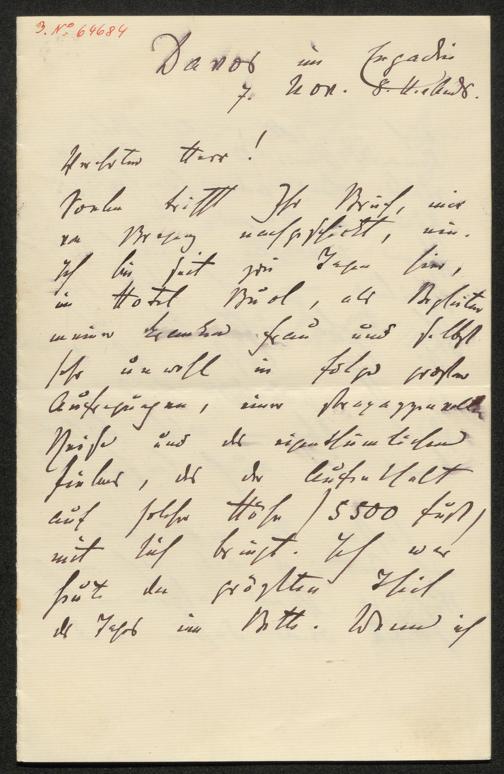 J. Nº 64684
Davos im Engadin
7. Nov. 8. U. Abends.
Verehrter Herr!
Soeben trifft Ihr Brief, mir
von Bregenz nachgeschickt, ein.
Ich bin seit zwei Tagen hier,
im Hotel Buol, als Begleiter
meiner kranken Frau und selbst
sehr unwohl in Folge großer
Aufregungen, einer strapazzenvollen
Reise und des eigenthümlichen
Fiebers, das der Aufenthalt
auf solcher Höhe (5500 Fuß)
mit sich bringt. Ich war
heute den größten Theil
des Tages im Bette. Wenn ich